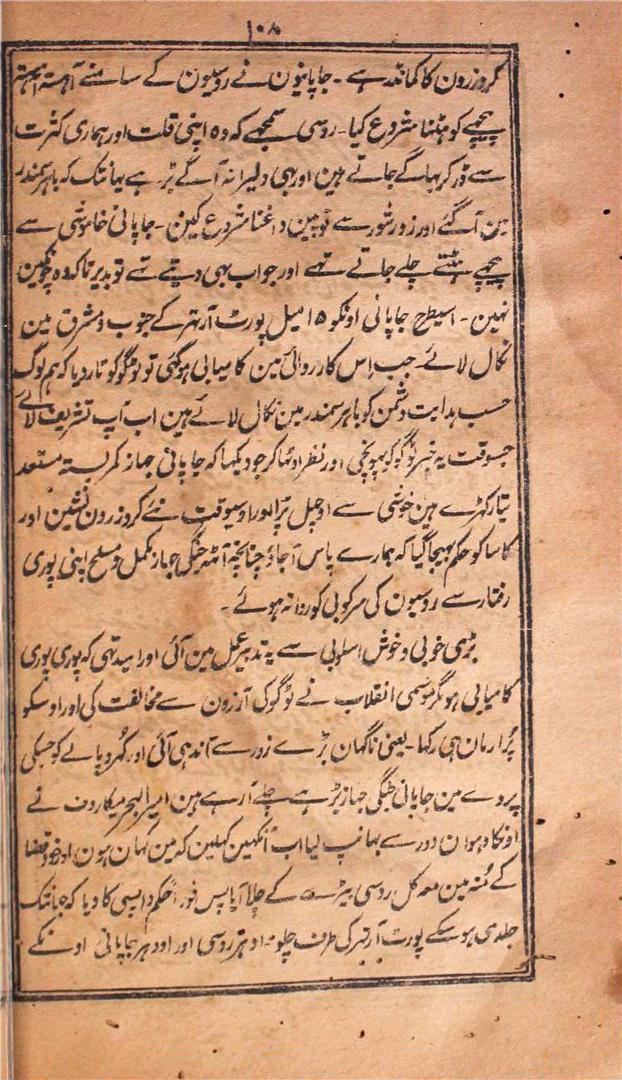 ۱۰۸
کروزرون کا کمانڈر ہے ۔ جاپانیون نے روسیون کے سامنے آہستہ آہستہ
پیچھے کو ہٹنا شروع کیا ۔ روسی سمجھے کہ وہ اپنی قلت اور ہماری کثرت
سے ڈر کر بہاگے جاتے ہین اور بہی دلیرانہ آگے بڑہے یہانتک کہ باہر سمندر
مین آگئے اور زور شور سے توپین داغنا شروع کین ۔ جاپانی خاموشی سے
پیچھے ہٹتے چلے جاتے تہے اور جواب بہی دیتے تہے تو بدیر تاکہ وہ چونکین
نہین ۔ اسیطح جاپانی اونکو ۱۵ میل پورٹ آرتہر کے جنوب و مشرق مین
نکال لائے جب اس کارروائی مین کامیابی ہوگئی تو ٹوگوکو تار دیا کہ ہم لوگ
حسب ہدایت دشمن کو باہر سمندر مین نکال لائے ہین اب آپ تشریف لائے
جسوقت یہ خبر ٹوگو کو پہونچی اور نظر اوٹہا کر جو دیکہا کہ جاپانی جہاز کمر بستہ مستعد
تیار کہڑے ہین خوشی سے اوچہل پڑا اور اوسیوقت نئے کروزرون نشین اور
کاسا کو حکم بہیجا گیا کہ ہمارے پاس آجاؤ چنانچہ آٹہ جنگی جہاز مکمل و مسلح اپنی پوری
رفتار سے روسیون کی سرکوبی کو روانہ ہوئے ۔
بڑی خوبی و خوش اسلوبی سے یہ تدبیر عمل مین آئی اور امید تہی کہ پوری پوری
کامیابی ہو مگر موسمی انقلاب نے ٹوگو کی آرزون سے مخالفت کی اور اوسکو
پُر ارمان ہی رکہا ۔ یعنی ناگہان بڑے زور سے آندہی آئی اور کُہر و پالے کو جسکی
پردے مین جاپانی جنگی جہاز بڑہے چلے آرہے ہین امیر البحر میکاروف نے
اونکا دہوان دور سے بہانپ لیا اب آنکہین کہلین کہ مین کہان ہون اور قضا
کے مُنہ مین معہ کل روسی بیڑے کے چلا آیا پس فوراً حکم واپسی کا دیا کہ جہانتک
جلدی ہوسکے پورٹ آرتہر کی طرف چلو ۔ اودہر روسی اور اودہر جاپانی اونکے